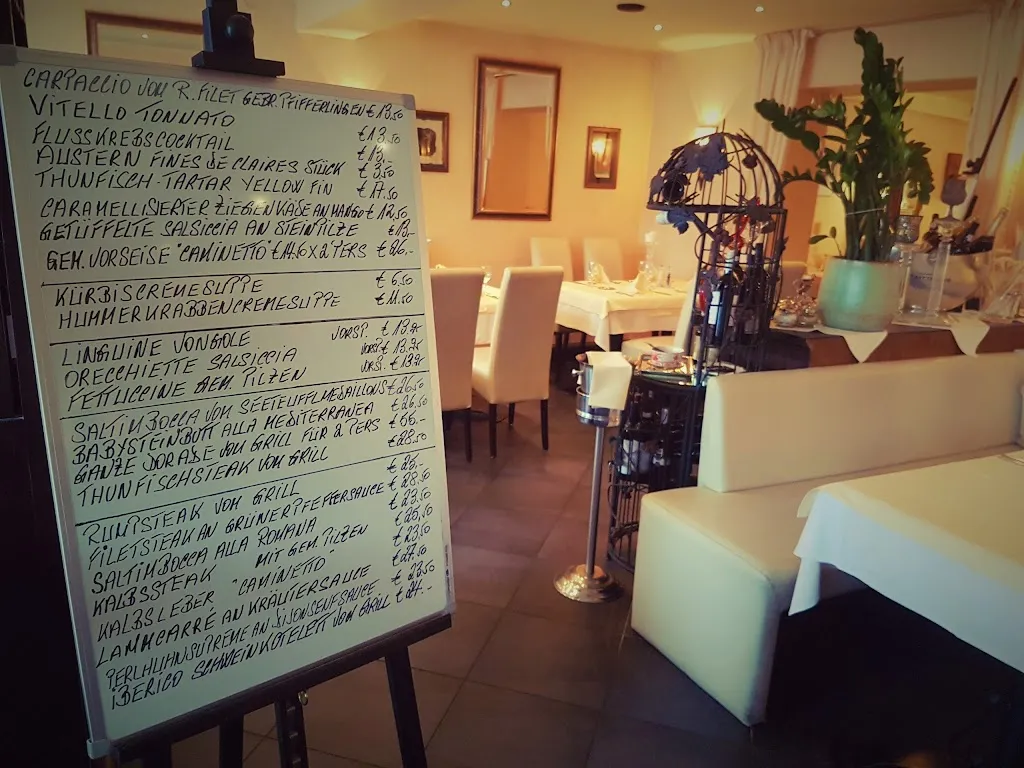 CARPACCIO VOM R. FILET GEBR. PFIFFERLINGEN € 13,50
VITELLO TONNATO € 13,50
FLUSSKREBSCOCKTAIL € 12,-
AUSTERN FINES DE CLAIRES STÜCK € 3,50
THUNFISCH-TARTAR YELLOW FIN € 17,50
CARAMELLISIERTER ZIEGENKÄSE AN MANGO € 12,50
GETÜFFELTE SALSICCIA AN STEINPILZE € 13,-
GEM. VORSEISE "CAMINETTO" X 2 PERS
KÜRBISCREMESUPPE € 6,50
HUMMERKRABBENCREMESUPPE € 11,50
LINGUINE VONGOLE VORSP. € 13,20
ORECCHIETTE SALSICCIA VORSP. € 13,20
FETTUCCINE GEM. PILZEN VORSP. € 13,20
SALTIMBOCCA VOM SEETEUFLMEDAILLONS € 26,50
BABYSTEINBUTT ALLA MEDITERRANEA € 26,50
GANZE DORADE VOM GRILL FÜR 2 PERS € 56,-
THUNFISCHSTEAK VOM GRILL € 28,50
RUMPSTEAK VOM GRILL € 25,-
FILETSTEAK AN GRÜNER PFEFFERSAUCE € 28,50
SALTIMBOCCA ALLA ROMANA € 23,50
KALBSSTEAK MIT GEM. PILZEN € 25,50
KALBSLEBER "CAMINETTO" € 23,50
LAMMCARRÉ AN KRÄUTERSAUCE € 27,50
PERLHUHNSUPREME AN DIJONSENFSAUCE € 23,50
IBERICO SCHWEINKOTELETT VOM GRILL € 24.-